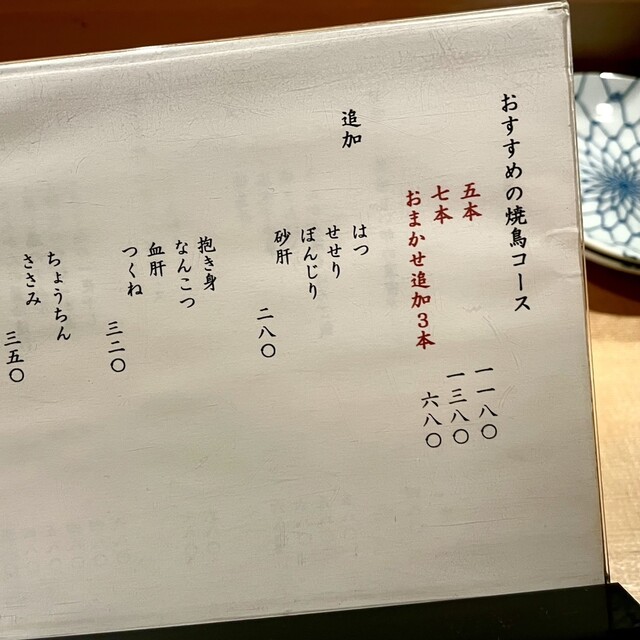 おすすめの焼鳥コース
五本 一一八〇
七本 一三八〇
おまかせ追加3本 六八〇
追加
はつ
せせり
ぼんじり
砂肝
二八〇
抱き身
なんこつ
血肝
つくね
三二〇
ちょうちん
ささみ
三五〇